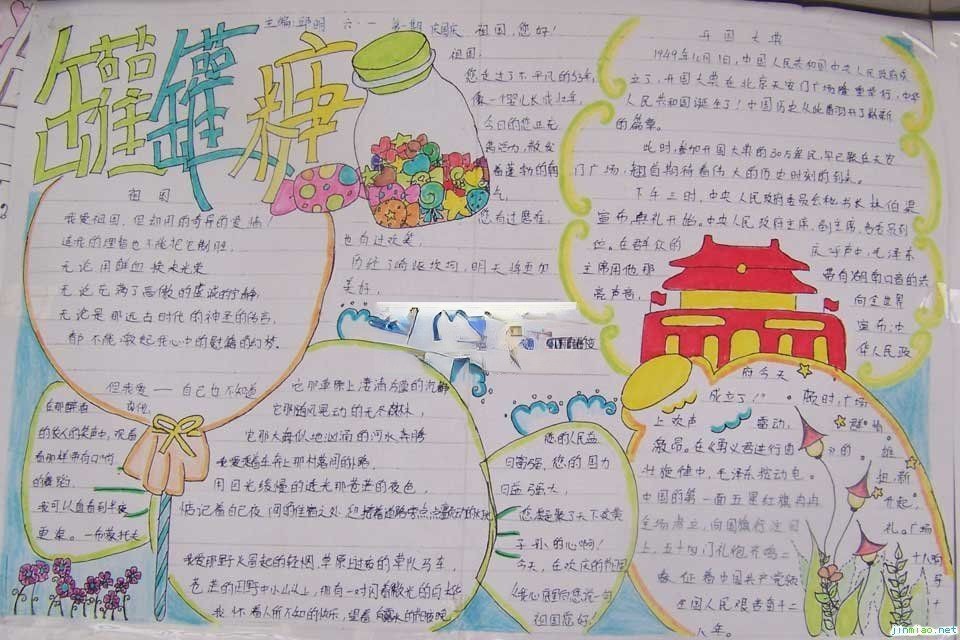 罐罐糖
主编:邱明 六·一 第一期 庆国庆
祖国,您好!
祖国:
您走过了不平凡的
像一个婴儿长成少年,
今日的您正充
满活力,散发
着蓬勃的朝
您有过磨难,
也有过欢笑,
历经了崎岖坎坷,明天将更加
美好,
祖国
我爱祖国,但却用的奇异的爱情
连我的理智也不能把它制胜,
无论用鲜血换来光荣
无论充满了高傲的虔诚的宁静
无论是那远古时代的神圣的传言,
都不能激起我心中的慰藉的幻梦。
但我爱——自己也不知道
它那草原上凄清冷漠的沉静
它那随风晃动的无尽森林,
它那大海似地汹涌的河水奔腾
我爱乘着车奔上那村落间的小路,
用目光缓慢的透光那苍茫的夜色,
惦记着自己夜间的住宿之处
我爱那野火冒起的轻烟,草原上过夜的车队马车,
苍茫的田野中小山头上,那有一对闪着微光的白桦
我怀着人所不知的快乐,望着
我可以直看到半夜
更来。一布农托夫
您的人民益
日富强,您的国力
日益强大,
您凝聚了天下炎黄
子孙的心啊!
今天,在欢庆的节日里
我心底向您说一句
祖国您好!
开国大典
1949年10月1日,中国人民共和国中央人民政府成
立了,开国大典在北京天安门广场隆重举行,中华
人民共和国诞生了!中国历史从此翻开了崭新
的篇章。
此时,参加开国大典的30万军民,早已聚在天安
门广场,翘首期待着伟大的历史时刻的到来。
下午三时,中央人民政府委员会秘书长林伯渠
宣布典礼开始。中央人民政府主席,副主席,各委员到
位。在群众的
欢呼声中,毛泽东
主席用他那
带自湖南口音的洪
亮声音,
向全世界
宣布:中
华人民政
府今天
成立了!”
顿时,广场
上欢声
雷动,
激昂。在《义勇军进行曲》的
雄壮旋律中,毛泽东按动电
中国的第一面五星红旗冉冉
升起,
全场肃立,向国旗行注目
礼。广场
上,五十四门礼炮齐鸣二
十八响,
象征着中国共产党领
导
全国人民艰苦奋斗二十
八年。
jinmiao.net